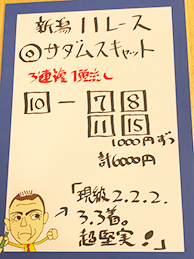 新潟11レース
◎サダムスキャット
3連複1頭流し
10 - 7 8
11 15
1000円ずつ
計6000円
「現級2.2.2.
3.3着。
超堅実!」